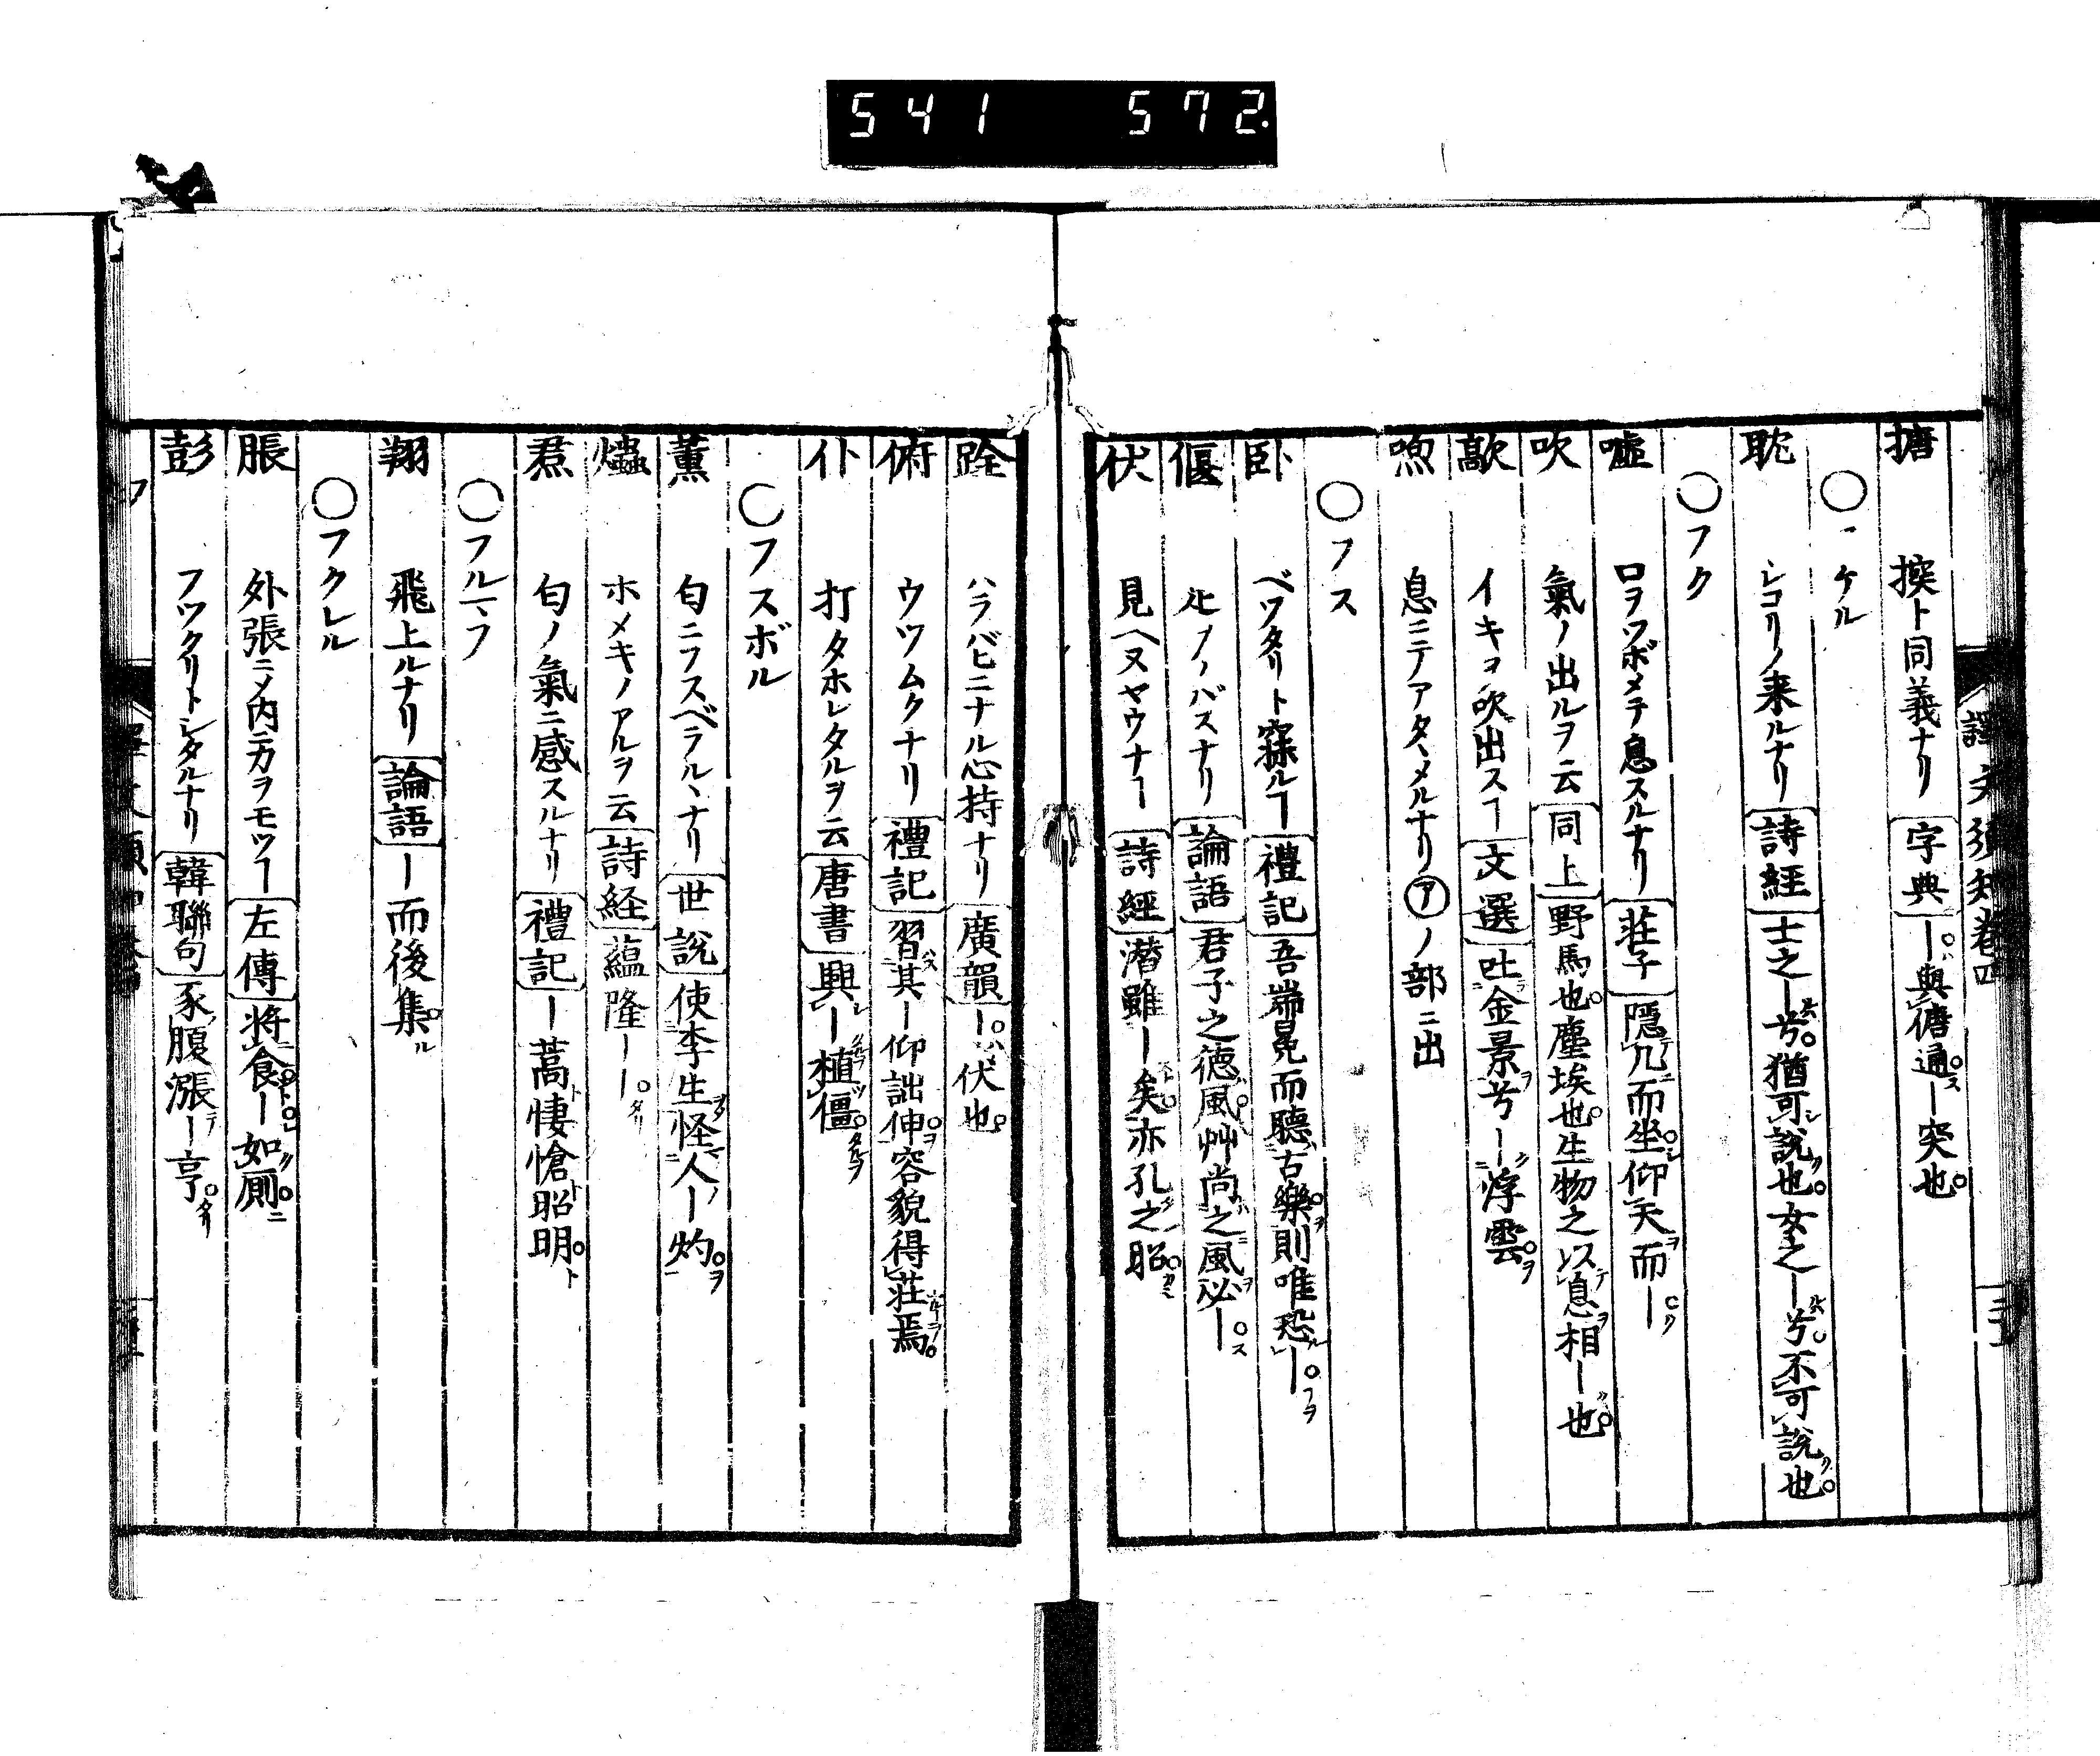 541 572.
譯文須知卷四
搪 揬ト同義ナリ 字典 ー與傏通ー突也
〇フケル
耽 シコリノ来ルナリ 詩經 士之ー兮猶可說也女之ー兮不可說也
〇フク
嘘 口ヲツボメテ息スルナリ 莊子 隱几而坐仰天而ー
吹 氣ノ出ルヲ云 同上 野馬也塵埃也生物之以息相ー也
歊 イキヲ吹出スヿ 文選 吐金景兮ー浮雲
喣 息ニテアタヽメルナリアノ部ニ出
〇フス
臥 ベツタリト寐ルヿ 禮記 吾端冕而聽古樂則唯恐ー
偃 ヒノバスナリ 論語 君子之徳風艸尚之風必ー
伏 見ヘヌヤウナヿ 詩經 潜雖ー矣亦孔之昭
跧 ハラバヒニナル心持ナリ 廣韻 ー伏也
俯 ウツムクナリ 禮記 習其ー仰詘伸容貌得莊焉
仆 打タホレタルヲ云 唐書 興ー植僵
〇フスボル
薫 匂ニフスベラルヽナリ 世說 使李生怪人ー灼
爞 ホメキノアルヲ云 詩経 蘊隆ー
焄 匂ノ氣ニ感スルナリ 禮記 ー蒿悽愴昭明
〇フルマフ
翔 飛上ルナリ 論語 ー而後集
〇フクレル
脹 外張ニメ内ニカヲモツヿ 左傳 将食ー如厠
彭 フツクリトシタルナリ 韓聯句 豕腹漲ー亨
フ